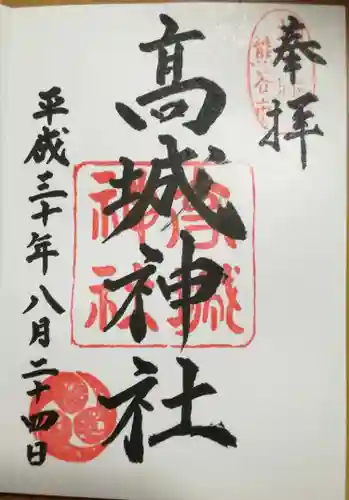 奉拝
熊谷
高城神社
高城神社
平成三十年八月二十四日